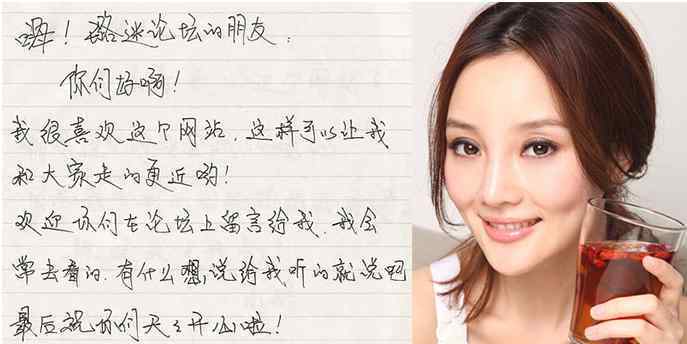 嗨！璐迷论坛的朋友：
你们好啊！
我很喜欢这个网站，这样可以让我
和大家走的更近哟！
欢迎你们在论坛上留言给我，我会
常去看的，有什么想说给我听的就说吧
最后祝你们天天开心啦！